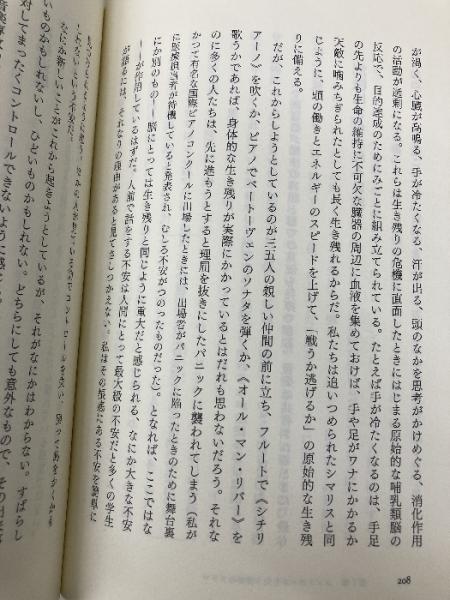 が渇く、心臓が高鳴る、手が冷たくなる、汗が出る、頭のなかを思考がかけめぐる、消化作用
の活動が過剰になる。これらは生き残りの危機に直面したときにはじまる原始的な哺乳類脳の
反応で、目的達成のためにみごとに組み立てられている。たとえば手が冷たくなるのは、手足
の先よりも生命の維持に不可欠な臓器の周辺に血液を集めておけば、手や足がワナにかかるか
天敵に噛みちぎられたとしても長く生き残れるからだ。私たちは追いつめられたシマリスと同
じように、頭の働きとエネルギーのスピードを上げて、「戦うか逃げるか」の原始的な生き残
りに備える。
だが、これからしようとしているのが三五人の親しい仲間の前に立ち、フルートで《シチリ
アーノ》を吹くか、ピアノでベートーヴェンのソナタを弾くか、《オール・マン・リバー》を
歌うかであれば、身体的な生き残りが実際にかかっているとはだれも思わないだろう。それな
のに多くの人たちは、先に進もうとすると理屈を抜きにしたパニックに襲われてしまう（私が
かつて有名な国際ピアノコンクールに出場したときには、出場者がパニックに陥ったときのために舞台裏
に医療担当者が待機していると発表され、むしろ不安がつのったものだった）。となれば、ここではな
にか別のもの――脳にとっては生き残りと同じように重大だと感じられる、なにか大きな不安
――が作用しているはずだ。人前で話をする不安は人間にとって最大級の不安だと多くの学生
が語るには、それなりの理由があると見てさしつかえない。私はその根底にある不安を簡単に
なにか新しいことがこれから起きようとしているが、それがなにかはわからない。すばらし
いものかもしれないし、ひどいものかもしれない。どちらにしても意外なもので、その
対してまったくコントロールできないように感じ
208